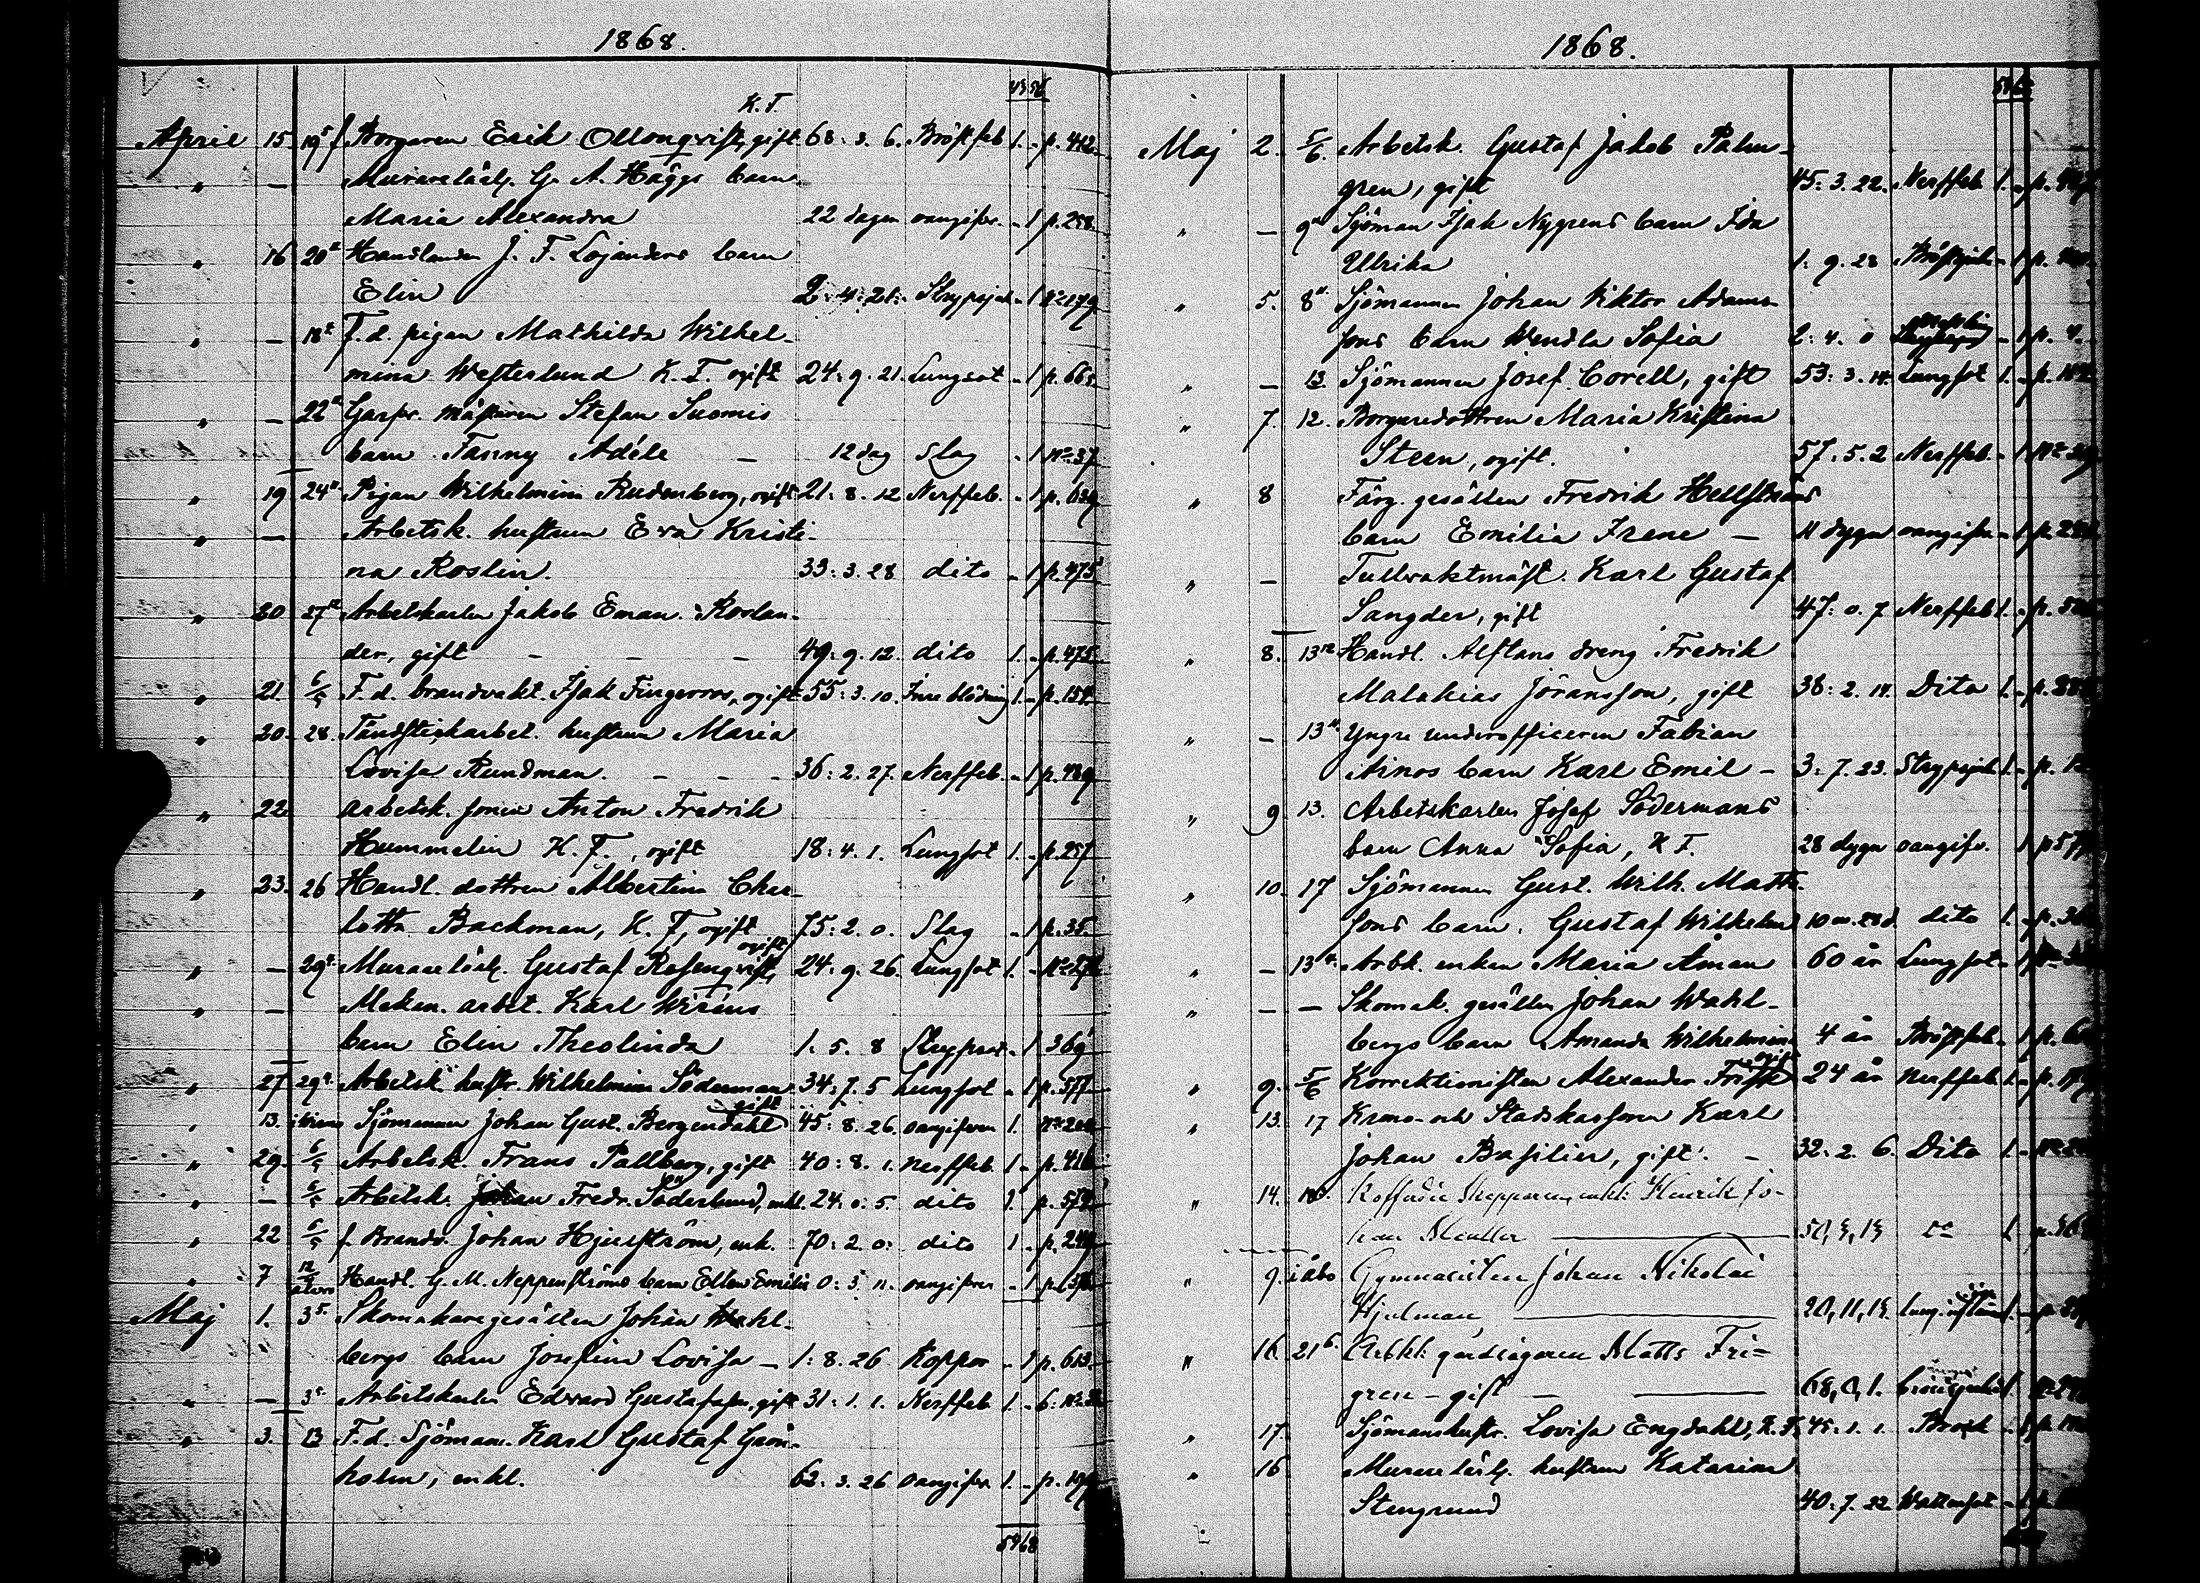 1868.
43 56
K. F.
April 15. 19 5 f. Borgaren Erik Ollonqvist, gift 68: 3. 6. Bröstfeb 1. - p. 412.
" — Murarelärl. G. A. Häggs barn
Maria Alexandra 22 dagar oangifv. - 1 p. 258.
" 16 20 Handlanden J. F. Lojanders barn
Elin 2: 4: 21. Strypsjuk - 1 No 179
" — 18 F. d. pigan Mathilda Wilhel-
mina Westerlund K. F. ogift 24: 9. 21. Lungsot - 1 p. 66
" — 22 Garfv. mästaren Stefan Suomis
barn Fanny Adéle — 12 dag Slag - 1 No 37
" 19 24 Pigan Wilhelmina Rudenberg, ogift 21: 8. 12 Nerffeb. - 1 p. 629
" — Arbetsk. hustrun Eva Kristi-
na Roslin. 33: 3. 28 dito - 1 p. 475
" 20 27 Arbetskarlen Jakob Eman. Roslan-
der, gift — — — 49: 9. 12. dito 1. - p. 475
" 21. 6/5 F. d. brandvakt. Isak Fingerroos, ogift 55: 3. 10. Inre blödning 1. - p. 154.
" 20. 28. Tändstickarbet. hustrun Maria
Lovisa Rundman. — — — 36: 2. 27. Nerffeb. - 1 p. 489
" 22 arbetsk. sonen Anton Fredrik
Hummelin K. F., ogift 18: 4. 1. Lungsot 1. - p. 257
" 23. 26 Handl. dottren Albertina Char-
lotta Backman, K. F, ogift 75: 2. 0. Slag - 1 p. 35.
ogift
" — 29 Murarelärl. Gustaf Rosenqvist, 24: 9. 26. Lungsot 1. - No
" — Mekan. arbet. Karl Wiréns
barn Elin Theolinda 1. 5. 8 Strypsot - 1 369
" 27 29 Arbetsk hustr. Wilhelmina Söderman 34: 7. 5 Lungsot - 1 p. 577
gift
" 13. Sjömannen Johan Gust. Bergendahl 45: 8. 26. oangifven 1. No 200
" 29. 6/5 Arbetsk. Frans Pallberg, gift 40: 8. 1. nerffeb. 1 - p. 416
" — 6/5 Arbetsk. Johan Fredr. Söderlund, enkl. 24: 0: 5. dito 1. p. 572
" 22 6/5 f. Brandv. Johan Hjerström, enk. 70: 2. 0: dito 1 - p. 249
" 7 Handl. G. M. Neppenströms barn Ellen Emilia 0: 3. 11. oangifven - 1 p.
Maj 1. 3 5. Skomakaregesällen Johan Wahl-
bergs barn Josefina Lovisa — 1: 8. 26 Koppor - 1 p. 613.
" — 3 5 Arbetskarlen Edvard Gustafsson, gift 31: 1. 1. Nerffeb 1. -
" 3. 13 F. d. Sjöman. Karl Gustaf Grön-
holm, enkl. 62: 3. 26 oangifven 1. - p.
5968
1868.
Maj 2. 5/6. Arbetsk. Gustaf Jakob Palm-
gren, gift 45: 3. 22. Nerffeb 1. - p.
" — 9 Sjöman Isak Nygrens barn Ida
Ulrika 1: 9. 28 Bröstsjuk - 1 p.
" 5. 8 Sjömannen Johan Viktor Adams-
sons barn Wendla Sofia 2: 4. 0 - 1 p. 4.
" — 13 Sjömannen Josef Corell, gift 53: 3. 14. Lungsot 1. - p.
" 7. 12. Borgaredottren Maria Kristina
Steen, ogift. 57. 5. 2 Nerffeb. - 1 No
" 8 Färg. gesällen Fredrik Hellströms
barn Emilia Irene — 11 dygn oangifven - 1 p.
" — Tullvaktmäst. Karl Gustaf
Sangder, gift 47: 0. 7 Nerffeb 1. - p.
" 8. 13 Handl. Alftans dreng Fredrik
Malakias Jöransson, gift 38: 2. 14. Dito 1. - p.
" — 13 Yngre underofficeren Fabian
Ainos barn Karl Emil — 3: 7. 23. Strypsjuk 1. - p.
" 9 13. Arbetskarlen Josef Södermans
barn Anna Sofia, K F. 28 dygn oangifv. 1 p 577
" 10. 17 Sjömannen Gust. Wilh. Matts-
sons barn. Gustaf Wilhelm 10 m. 28 d. dito 1. - p.
" — 13 Arbk. enkan Maria Åman 60 år Lungsot - 1
" — — Skomak. gesällen Johan Wahl-
bergs barn Amanda Wilhelmina 4 år Bröstfeb. - 1 p.
ogift
" 9. 5/6 Korrektionisten Alexander Frisk 24 år nerffeb. 1. - p.
" 13. 17 Krono- och Stadskassören Karl
Johan Basilier, gift. — 32: 2. 6. Dito 1. - No
" 14. Koffardie Skepparen, enkl: Henrik Jo-
han Mouller ——— 50, 3, 13 do 1. p.
" 9. i Åbo Gymnasisten Johan Nikolai
Hjelman, ——— 20, 11, 13. Lunginflam 1. - p.
" 16. 21 6. Arbk: gårdsägaren Matts Fri-
gren - gift — ——— 68, 0, 1. 1.
" 17. Sjömanshustr. Lovisa Engdahl, K. F. 45. 1. 1. Brock
" 16 Murarelärl. hustrun Katarina
Stengrund 40: 7. 22 Wattensot - 1